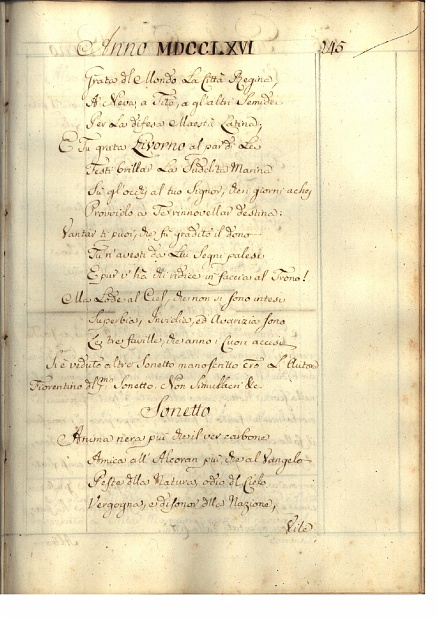 Anno MDCCLXVI 245
Grata del Mondo La Città Regina
A' Neva, a Tito, a gl'altri Semidei
Per La difesa Maestà Latina,
E Tu grata Livorno al par di Lei
Festi brillar La Fedeltà Marina
Su gl'occhj al tuo Signor, che in giorni a
Provvido a Te rinnovellar destina:
Vantar ti puoi, che fu gradito il dono
Tu n'avesti da Lui Segni palesi
E pur v'ha chi ridice in faccia al Trono!
Ma Lode al Ciel, che non si sono intesi
Superbia, Invidia, ed Avarizia sono
Le tre faville, che anno i Cuori accesi
Si è veduto altro Sonetto manoscritto L'Autor
Fiorentino del Sonetto, Non Simulacri &c.
Sonetto
Anima nera più che il ver carbone
Amica all'Alcoran più che al Vangelo
Peste della Natura, odio del Cielo
Vergogna, e disonor della Nazione,
Vile